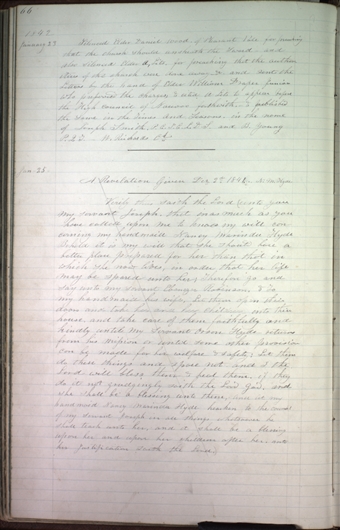 66
1842
January 23
Silenced Elder Daniel Wood of Pleasant Vale for preaching
that the church should unsheath the Sword and
also silenced Elder A. Litz for preaching that the authori
ties of this church were done away &c and sent the
letters by the hand of Elder William Draper Junior
who preferred the charges & cited to appear before
the High Council of Nauvoo forthwith & published
the same in the Times and Seasons, in the name
of Joseph Smith and B. Young
Jan. 28.
A Revelation given Dec 2nd 1841 Nauvoo
Verily thus saith the Lord unto you
my servant Joseph that inasmuch as you
have called upon me to know my will con-
cerning my handmaid Nancy Marinda Hyde
Behold it is my will that she should have a
better place prepared for her than that in
which she now lives, in order that her life
may be spared unto her; Therefore go and
say unto my servant Ebenezer Robinson, & to
my handmaid his wife, Let them open their
doors and take her and her children into their
house, and take care of them faithfully and
kindly until my Servant Orson Hyde returns
from his mission or until some other provision
can be made for her welfare & safety; Let them
do these things and spare not and I the
Lord will bless them & heal them, if they
do it not grudgingly saith the Lord God, and
she shall be a blessing unto them, and let my
handmaid Nancy Marinda Hyde hearken to the counsel
of my servant Joseph in all things whatsoever he
shall teach unto her, and it shall be a blessing
upon her and upon her children after her, unto
her Justification saith the Lord.